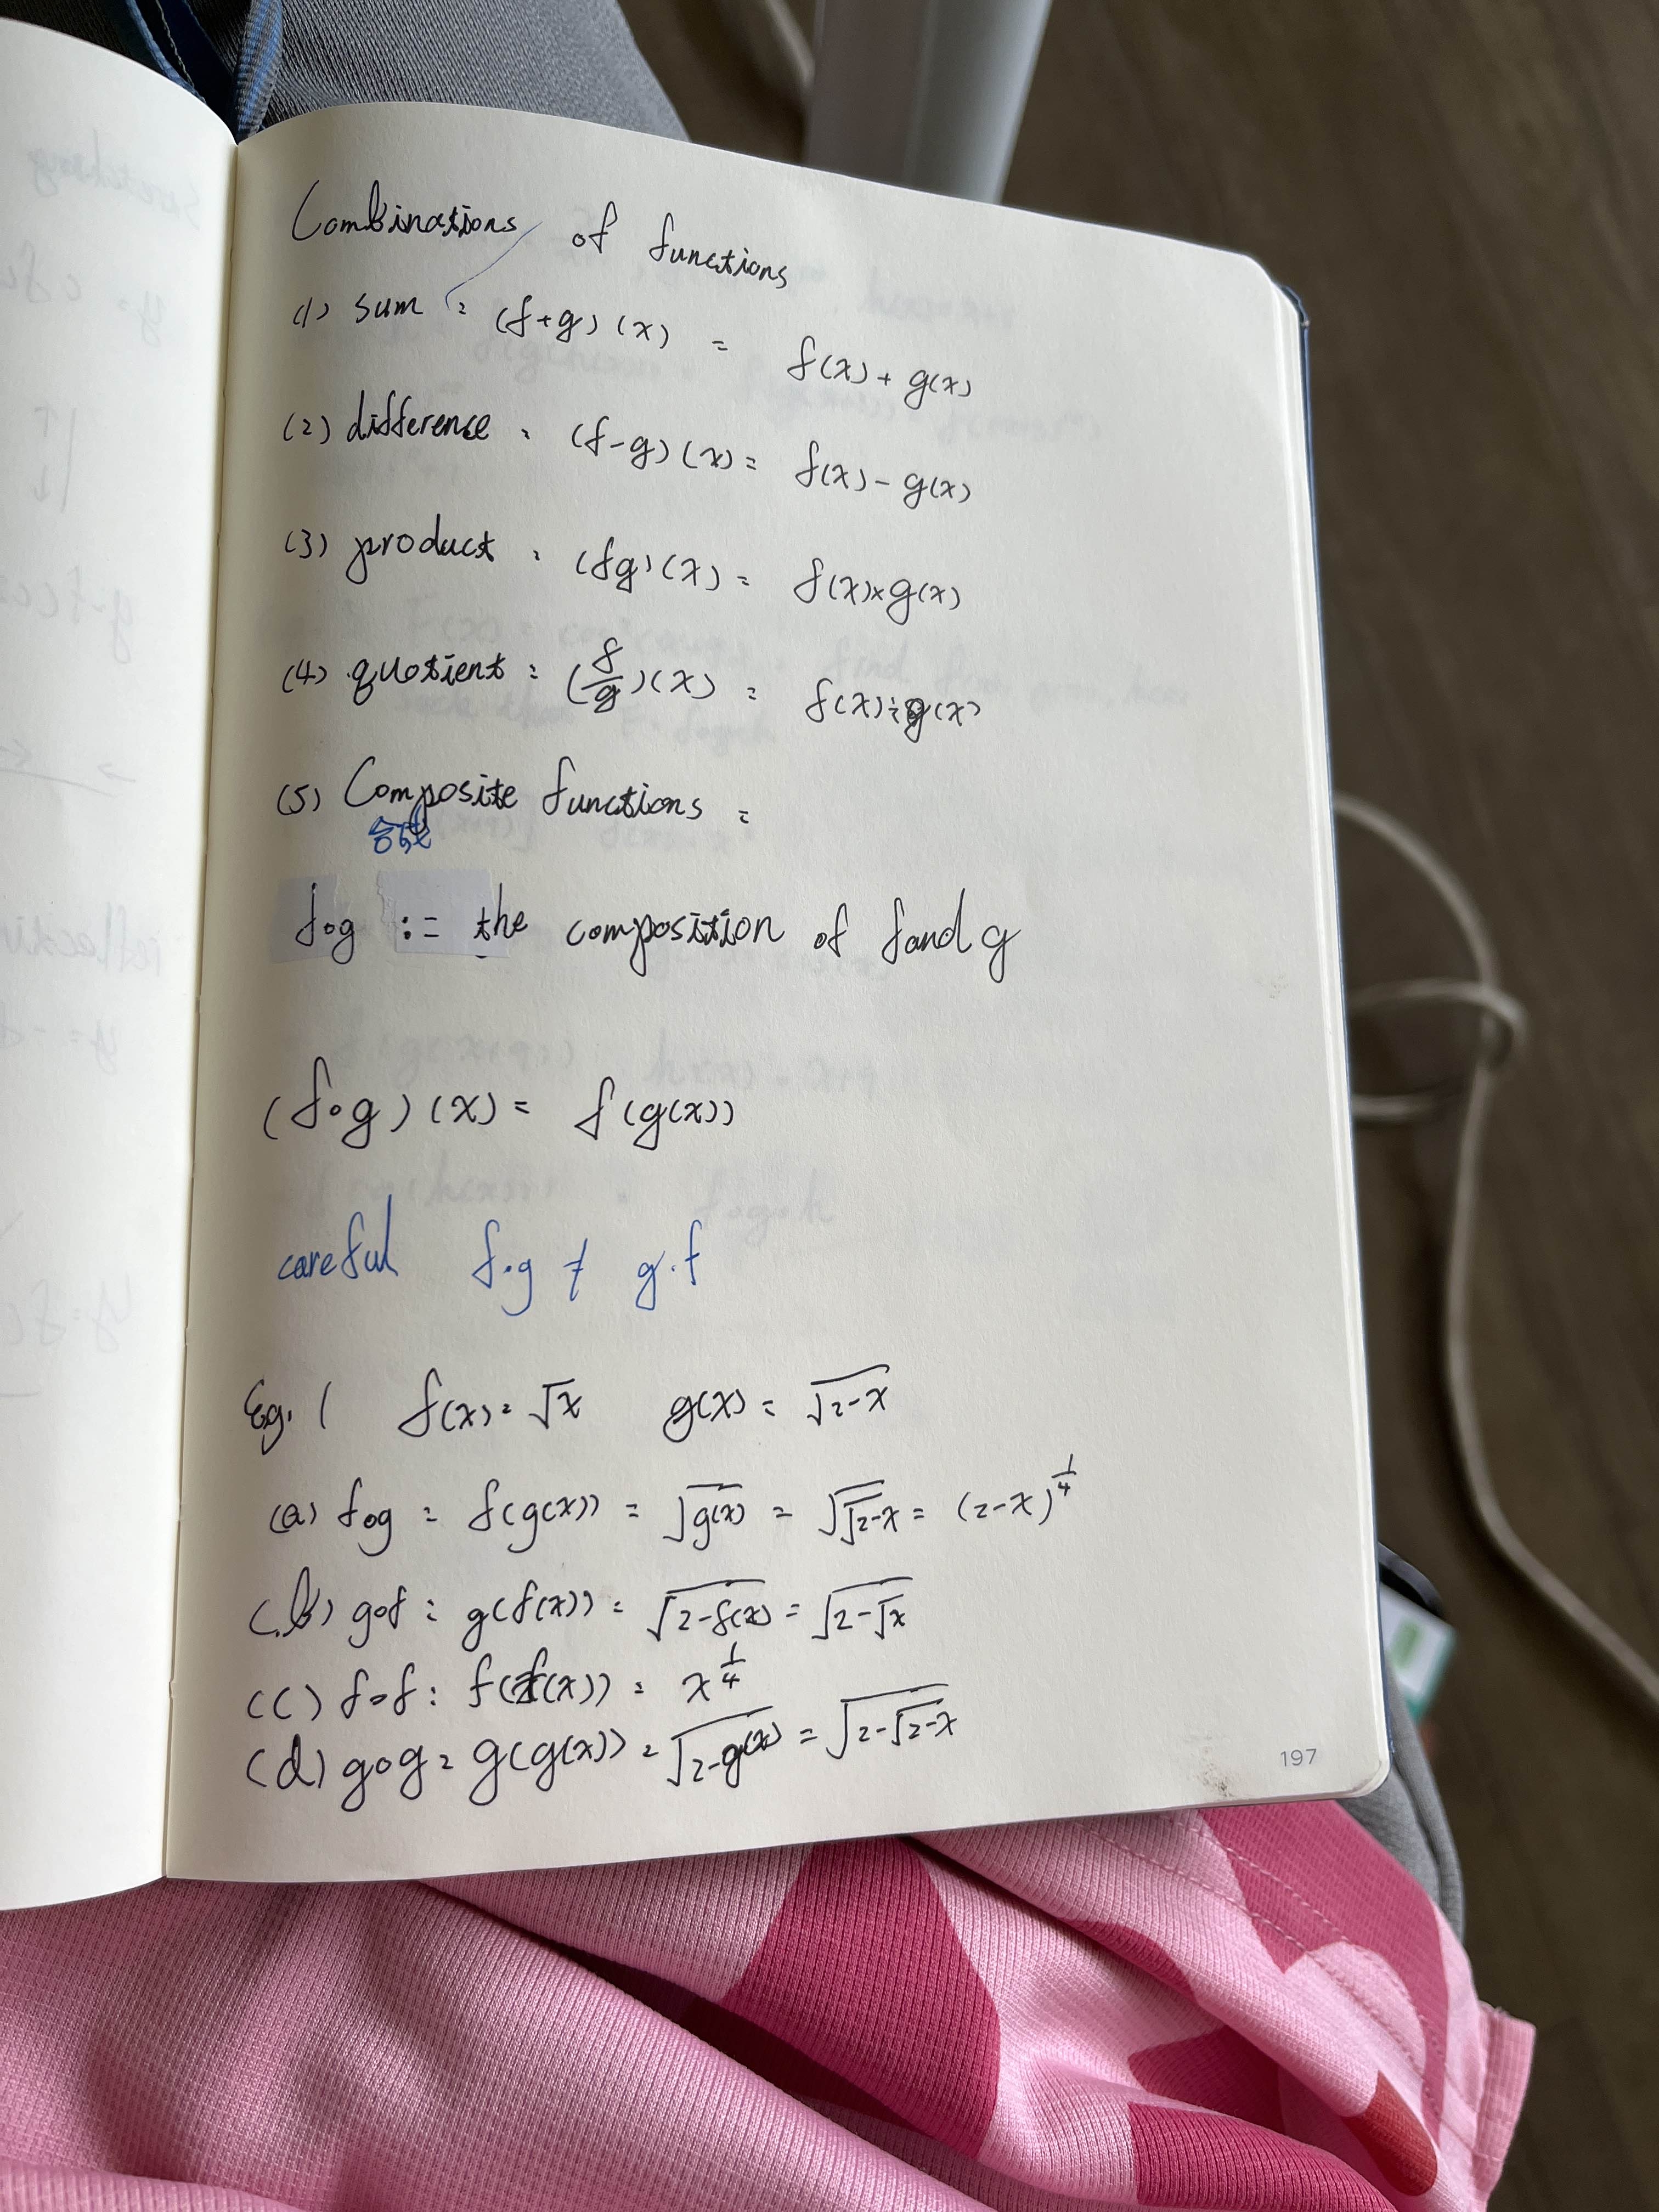 Combinations of functions
(1) sum : (f+g)(x) = f(x) + g(x)
(2) difference : (f-g)(x) = f(x) - g(x)
(3) product : (fg)(x) = f(x)×g(x)
(4) quotient : (f/g)(x) = f(x)÷g(x)
(5) Composite functions :
合成
f∘g := the composition of f and g
(f∘g)(x) = f(g(x))
careful f∘g ≠ g∘f
Eg. 1 f(x) = √x g(x) = √(2-x)
(a) f∘g = f(g(x)) = √g(x) = √√(2-x) = (2-x)^(1/4)
(b) g∘f : g(f(x)) = √(2-f(x)) = √(2-√x)
(c) f∘f : f(f(x)) = x^(1/4)
(d) g∘g = g(g(x)) = √(2-g(x)) = √(2-√(2-x))
197